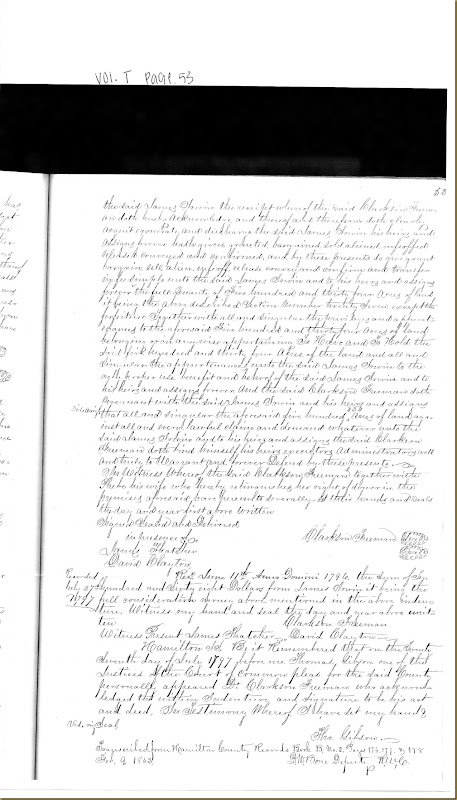 Vol. T Page. 53
53
the said James Irwin the receipt where of the said Clarkson Freem-
an doth hereby Acknowledge, and thereof and therefrom doth
acquit exonerate and discharge the said James Irwin his heirs and
Assigns forever hath given granted bargained sold aliened enfeoffed
released conveyed and confirmed, and by these presents do give grant
bargain sell alien enfeoff release convey and confirm and transfer
in fee simple unto the said James Irwin and to his heirs and assigns
forever the full quantity of Five hundred and thirty four Acres of land
it being the above described
Together with all and singular the privileges and
to the aforesaid Five hundred and thirty four Acres of land
belonging or in anywise appertaining To Have and To Hold the
said five hundred and thirty four Acres of the land and all and
Singular the appurtenances unto the said James Irwin to the
only proper use benefit and behoof of the said James Irwin and to
his heirs and assigns forever And the said Clarkson Freeman doth
covenant with the said James Irwin and his heirs and assigns
that all and singular the aforesaid five hundred Acres of land again-
inst all and every lawful claim and demand whatever unto the
said James Irwin and to his heirs and assigns the said Clarkson
Freeman doth bind himself his heirs executors Administrators well
and truly to Warrant and forever Defend by these presents
In Witness Whereof the said Clarkson Freeman together with
his wife who hereby relinquishes her right of dower in the
premises aforesaid have hereunto severally set their hands and seals
the day and year first above written
Signed Sealed and Delivered
in presence of
Clarkson Freeman
James Thatcher
David Clayton
Recorded
July 27
1797
Recd June 11th Anno Domini 1796, the Sum of
Hundred and Sixty eight Dollars from James Irwin it being the
full consideration money above mentioned in the above Inden-
ture. Witness my hand and seal the day and year above writ-
ten Clarkson Freeman
Witness Present James Thatcher David Clayton
Hamilton Be it Remembered that on the twenty
Seventh day of July 1797 before me Thomas Gibson one of the
Justices of the Court of Common pleas for the said County
personally appeared Dr Clarkson Freeman who acknow-
ledged the within Indenture and signature to be his act
and deed, In Testimony Whereof I have set my hand &
Seal
Tho. Gibson
Transcribed from Hamilton County Records Book B. No. 2, Page 176, 177, & 178
Feb. 9 1863
Deputy